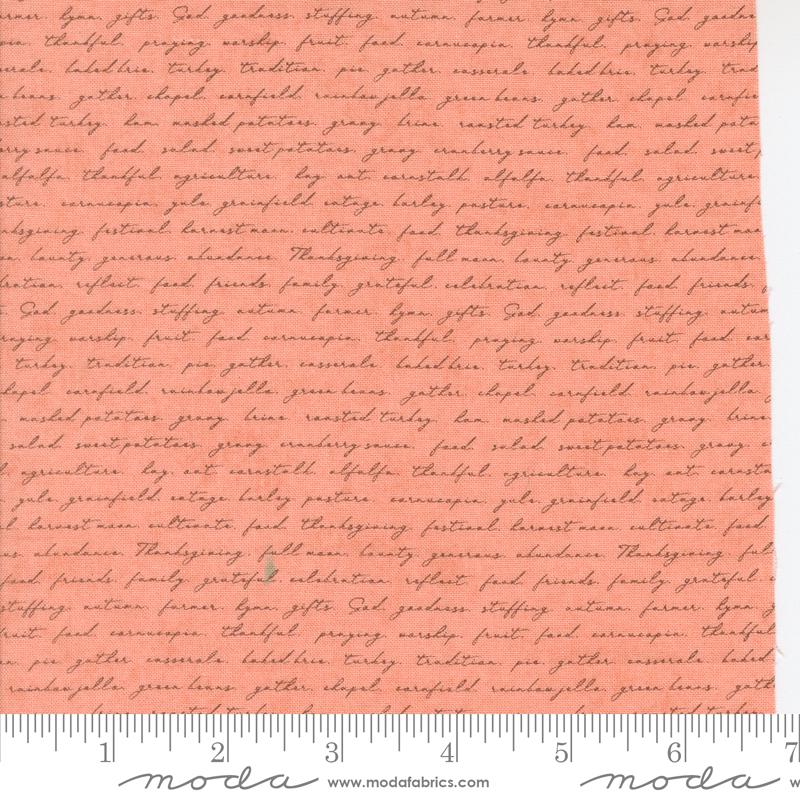 hymn. gifts. God. goodness. stuffing. autumn. farmer. hymn. gifts. God. goodne
thankful. praying. worship. fruit. food. cornucopia. thankful. praying. worship
baked brie. turkey. tradition. pie. gather. casserole. baked brie. turkey. trad
beans. gather. chapel. cornfield. rainbow jello. green beans. gather. chapel. cornfie
turkey. ham. mashed potatoes. gravy. brine. roasted turkey. ham. mashed pota
sauce. food. salad. sweet potatoes. gravy. cranberry sauce. food. salad. sweet
alfalfa. thankful. agriculture. hay. oat. cornstalk. alfalfa. thankful. agriculture.
cornucopia. yule. grainfield. cotage. barley. pasture. cornucopia. yule. grainf
festival. harvest moon. cultivate. food. thanksgiving. festival. harvest moo
bounty. generous. abundance. Thanksgiving. full moon. bounty. generous. abundance.
reflect. food. friends. family. grateful. celebration. reflect. food. friends.
God. goodness. stuffing. autumn. farmer. hymn. gifts. God. goodness. stuffing. autum
worship. fruit. food. cornucopia. thankful. praying. worship. fruit. food. cor
turkey. tradition. pie. gather. casserole. baked brie. turkey. tradition. pie. gather.
cornfield. rainbow jello. green beans. gather. chapel. cornfield. rainbow jello.
mashed potatoes. gravy. brine. roasted turkey. ham. mashed potatoes. gravy. brine
salad. sweet potatoes. gravy. cranberry sauce. food. salad. sweet potatoes. gravy.
agriculture. hay. oat. cornstalk. alfalfa. thankful. agriculture. hay. oat. cornsta
yule. grainfield. cotage. barley. pasture. cornucopia. yule. grainfield. cotage. barley
harvest moon. cultivate. food. thanksgiving. festival. harvest moon. cultivate. food
abundance. Thanksgiving. full moon. bounty. generous. abundance. Thanksgiving. full
food. friends. family. grateful. celebration. reflect. food. friends. family. grateful.
stuffing. autumn. farmer. hymn. gifts. God. goodness. stuffing. autumn. farmer. hymn.
fruit. food. cornucopia. thankful. praying. worship. fruit. food. cornucopia. thankful
pie. gather. casserole. baked brie. turkey. tradition. pie. gather. casserole. baked
rainbow jello. green beans. gather. chapel. cornfield. rainbow jello. green beans. gath
1 2 3 4 5 6 7
moda www.modafabrics.com moda w